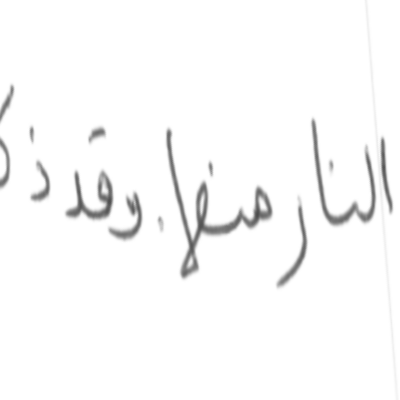 النار منها. وقد ذ